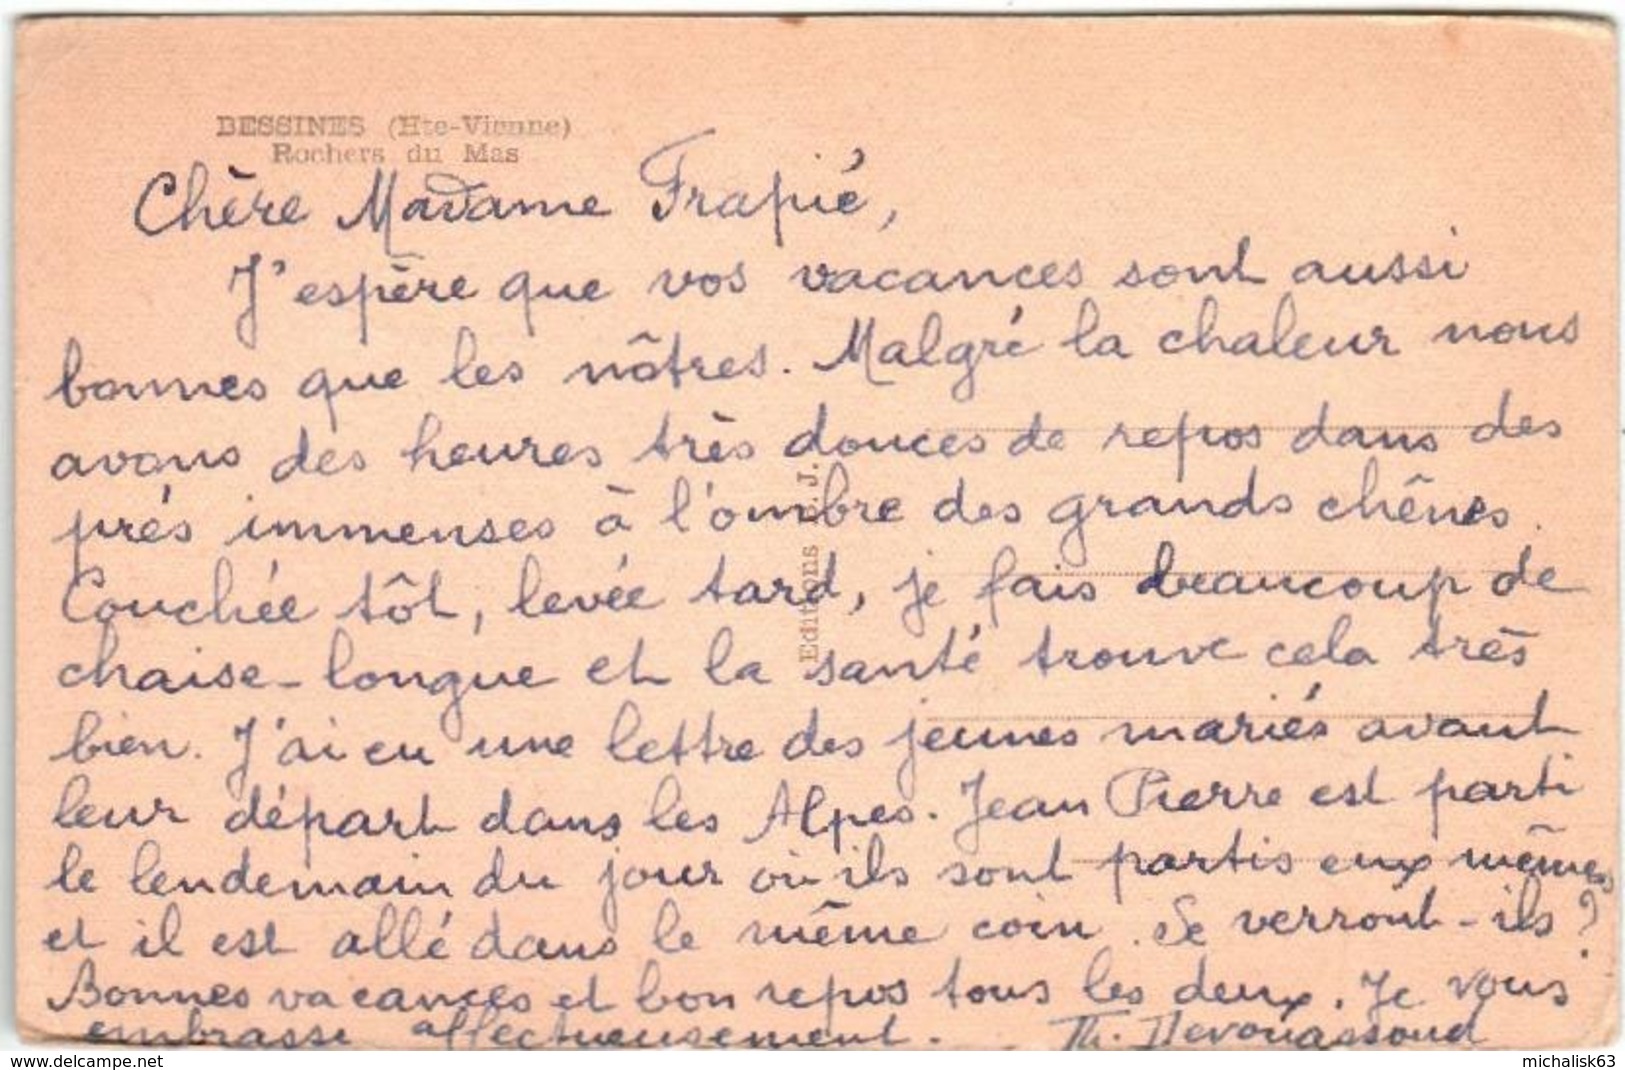 BESSINES (Hte-Vienne)
Rochers du Mas
Chère Madame Frapié,
J'espère que vos vacances sont aussi
bonnes que les nôtres. Malgré la chaleur nous
avons des heures très douces de repos dans des
prés immenses à l'ombre des grands chênes.
Couchée tôt, levée tard, je fais beaucoup de
chaise-longue et la santé trouve cela très
bien. J'ai eu une lettre des jeunes mariés avant
leur départ dans les Alpes. Jean Pierre est parti
le lendemain du jour où ils sont partis eux mêmes
et il est allé dans le même coin. Se verront-ils?
Bonnes vacances et bon repos tous les deux. Je vous
embrasse affectueusement. Th. Devouassoud
Editions J.
www.delcampe.net
michalisk63